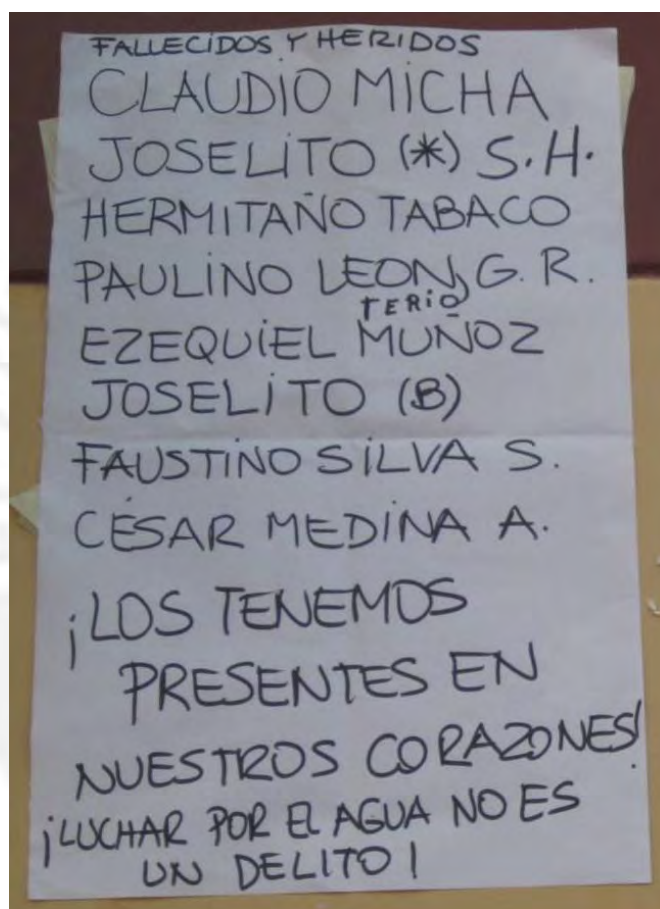 FALLECIDOS Y HERIDOS
CLAUDIO MICHA
JOSELITO (*) S.H.
HERMITAÑO TABACO
PAULINO LEONTERIO G. R.
EZEQUIEL MUÑOZ
JOSELITO (B)
FAUSTINO SILVA S.
CÉSAR MEDINA A.
¡LOS TENEMOS
PRESENTES EN
NUESTROS CORAZONES!
¡LUCHAR POR EL AGUA NO ES
UN DELITO!